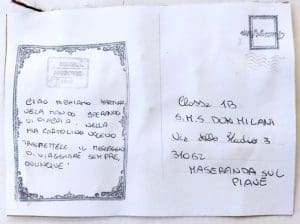 CIAO MI CHIAMO MARTINA
VE LA MANDO SPERANDO
VI PIACCIA! NELLA
MIA CARTOLINA VOLEVO
TRASMETTERE IL MESSAGGIO
DI VIAGGIARE SEMPRE,
OVUNQUE!
Classe 1B
S.M.S DON MILANI
Via dello Stadio 3
31052
MASERANDA SUL
PIAVE